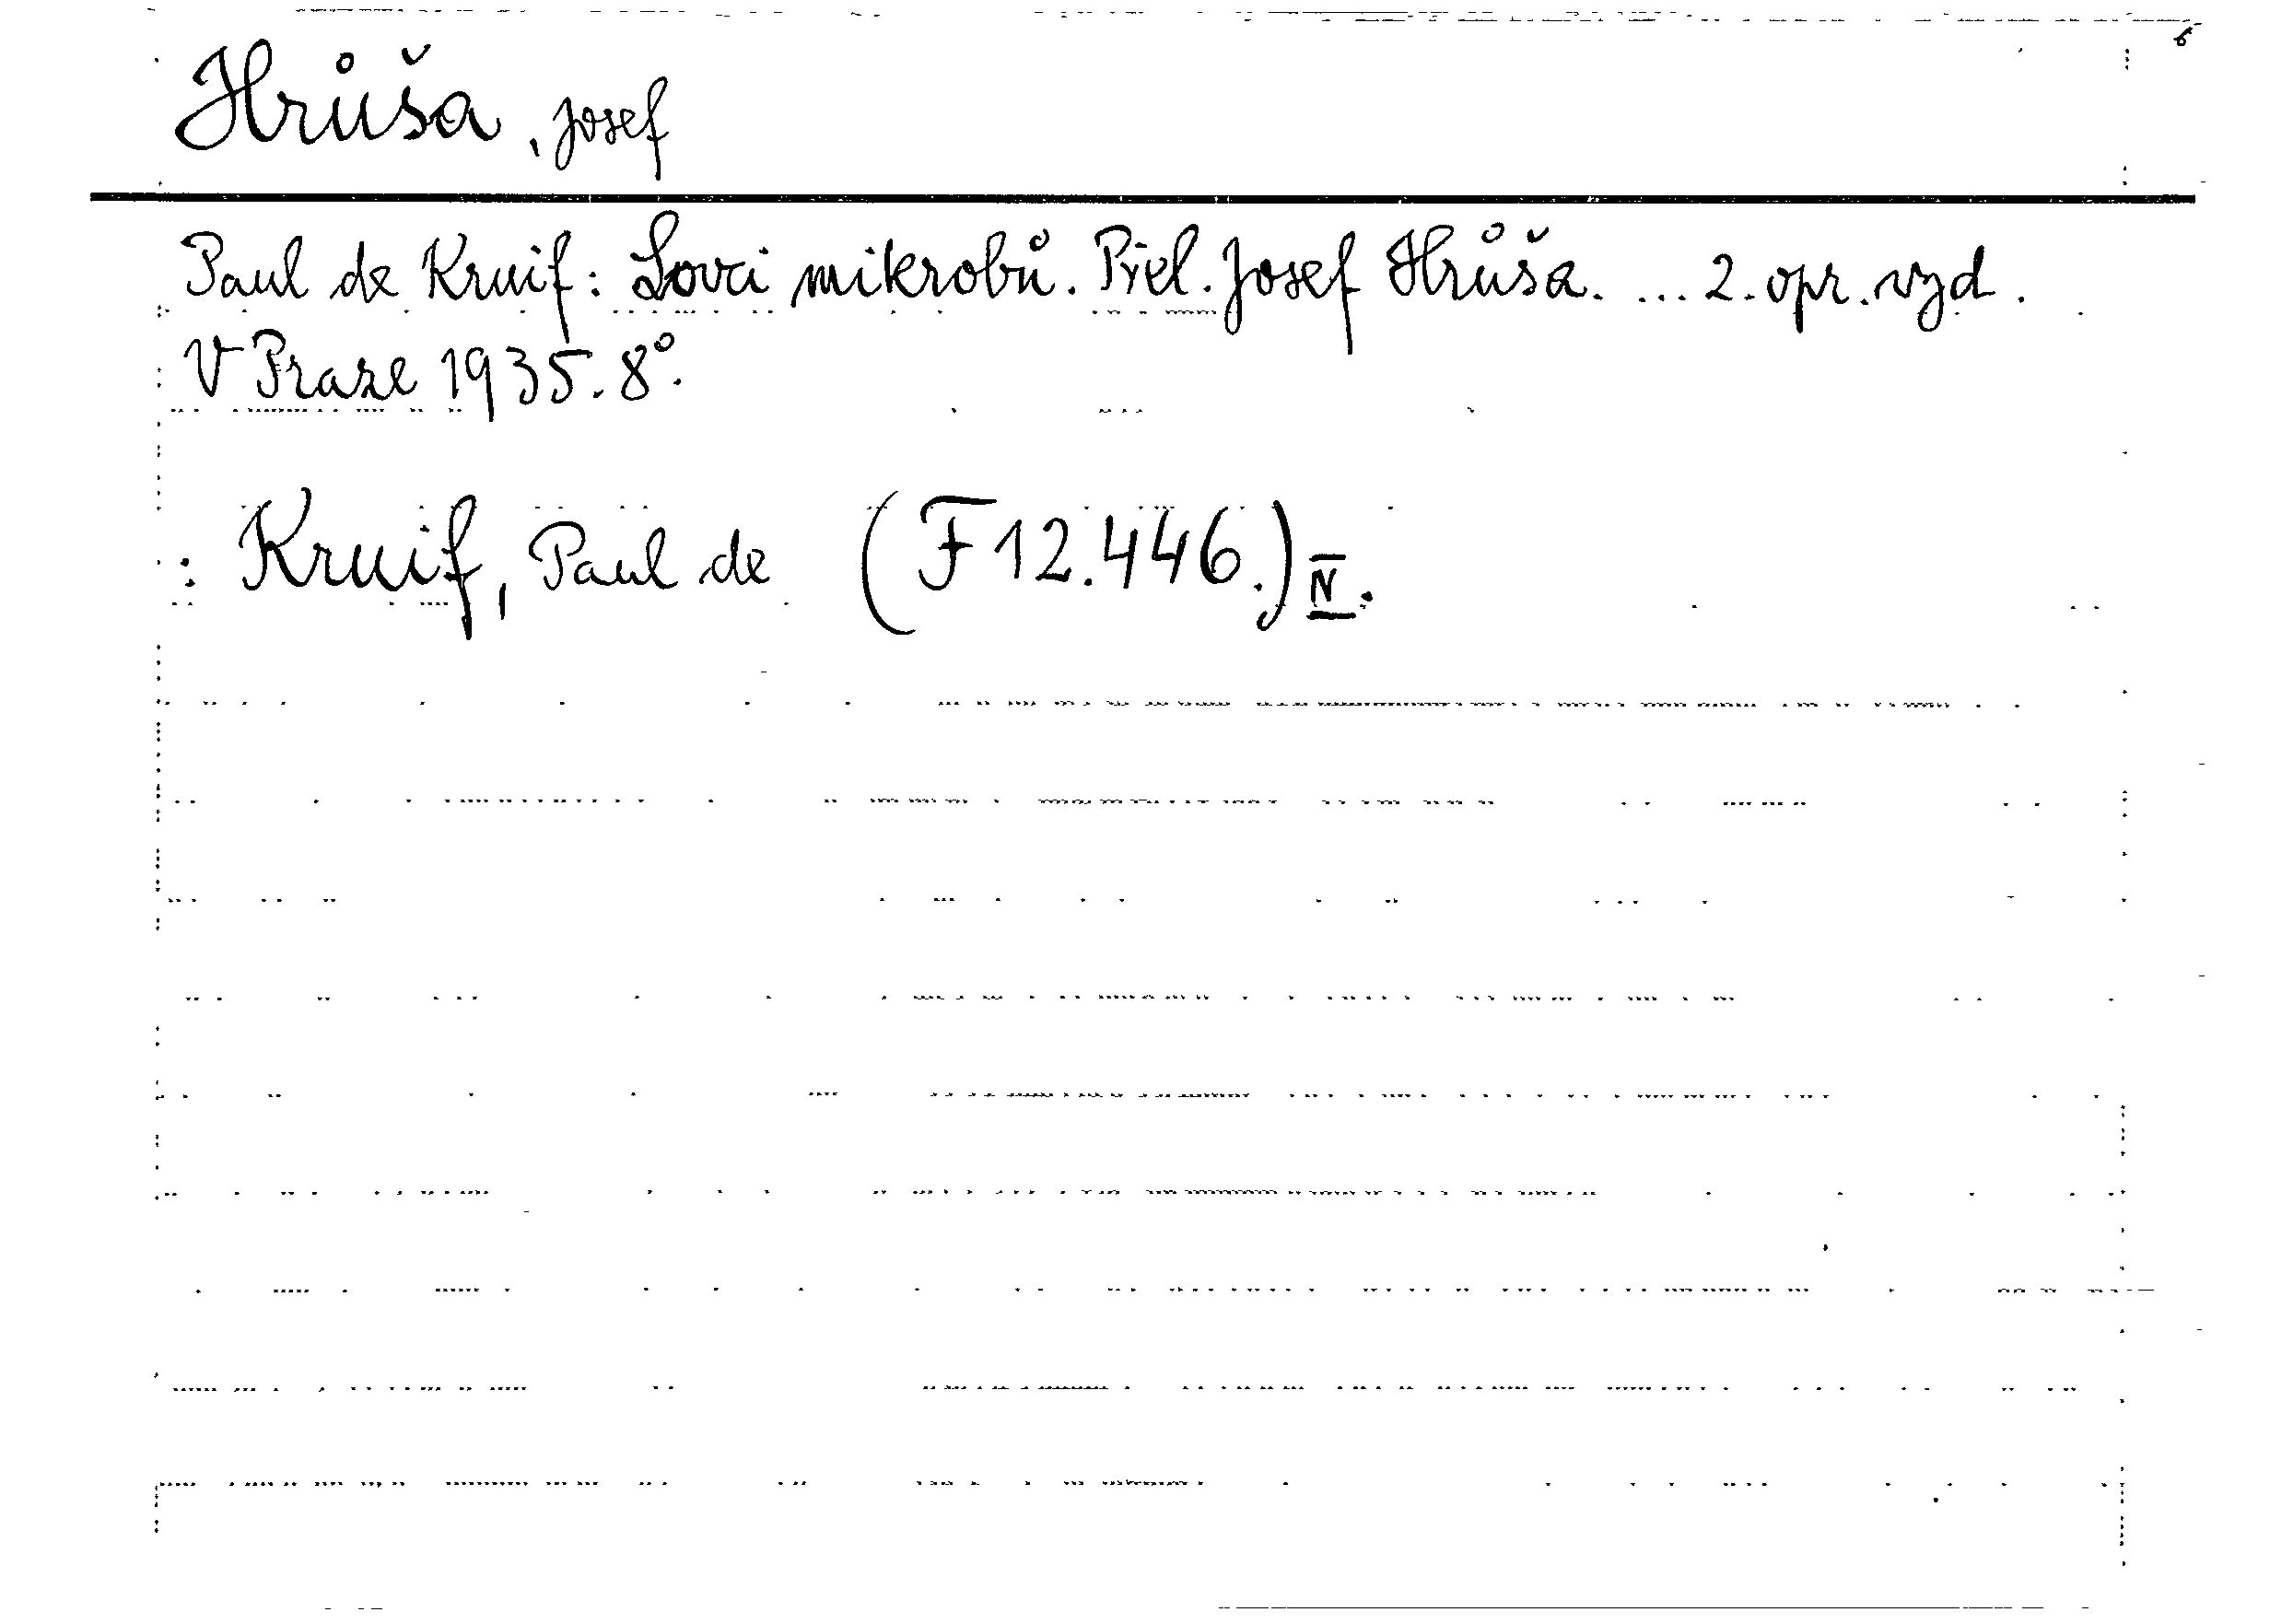 Hrůša, Josef
Paul de Kruif: Lovci mikrobů. Přel. Josef Hrůša. ... 2. opr. vyd.
V Praze 1935. 8°.
: Kruif, Paul de (F 12.446.) IV.